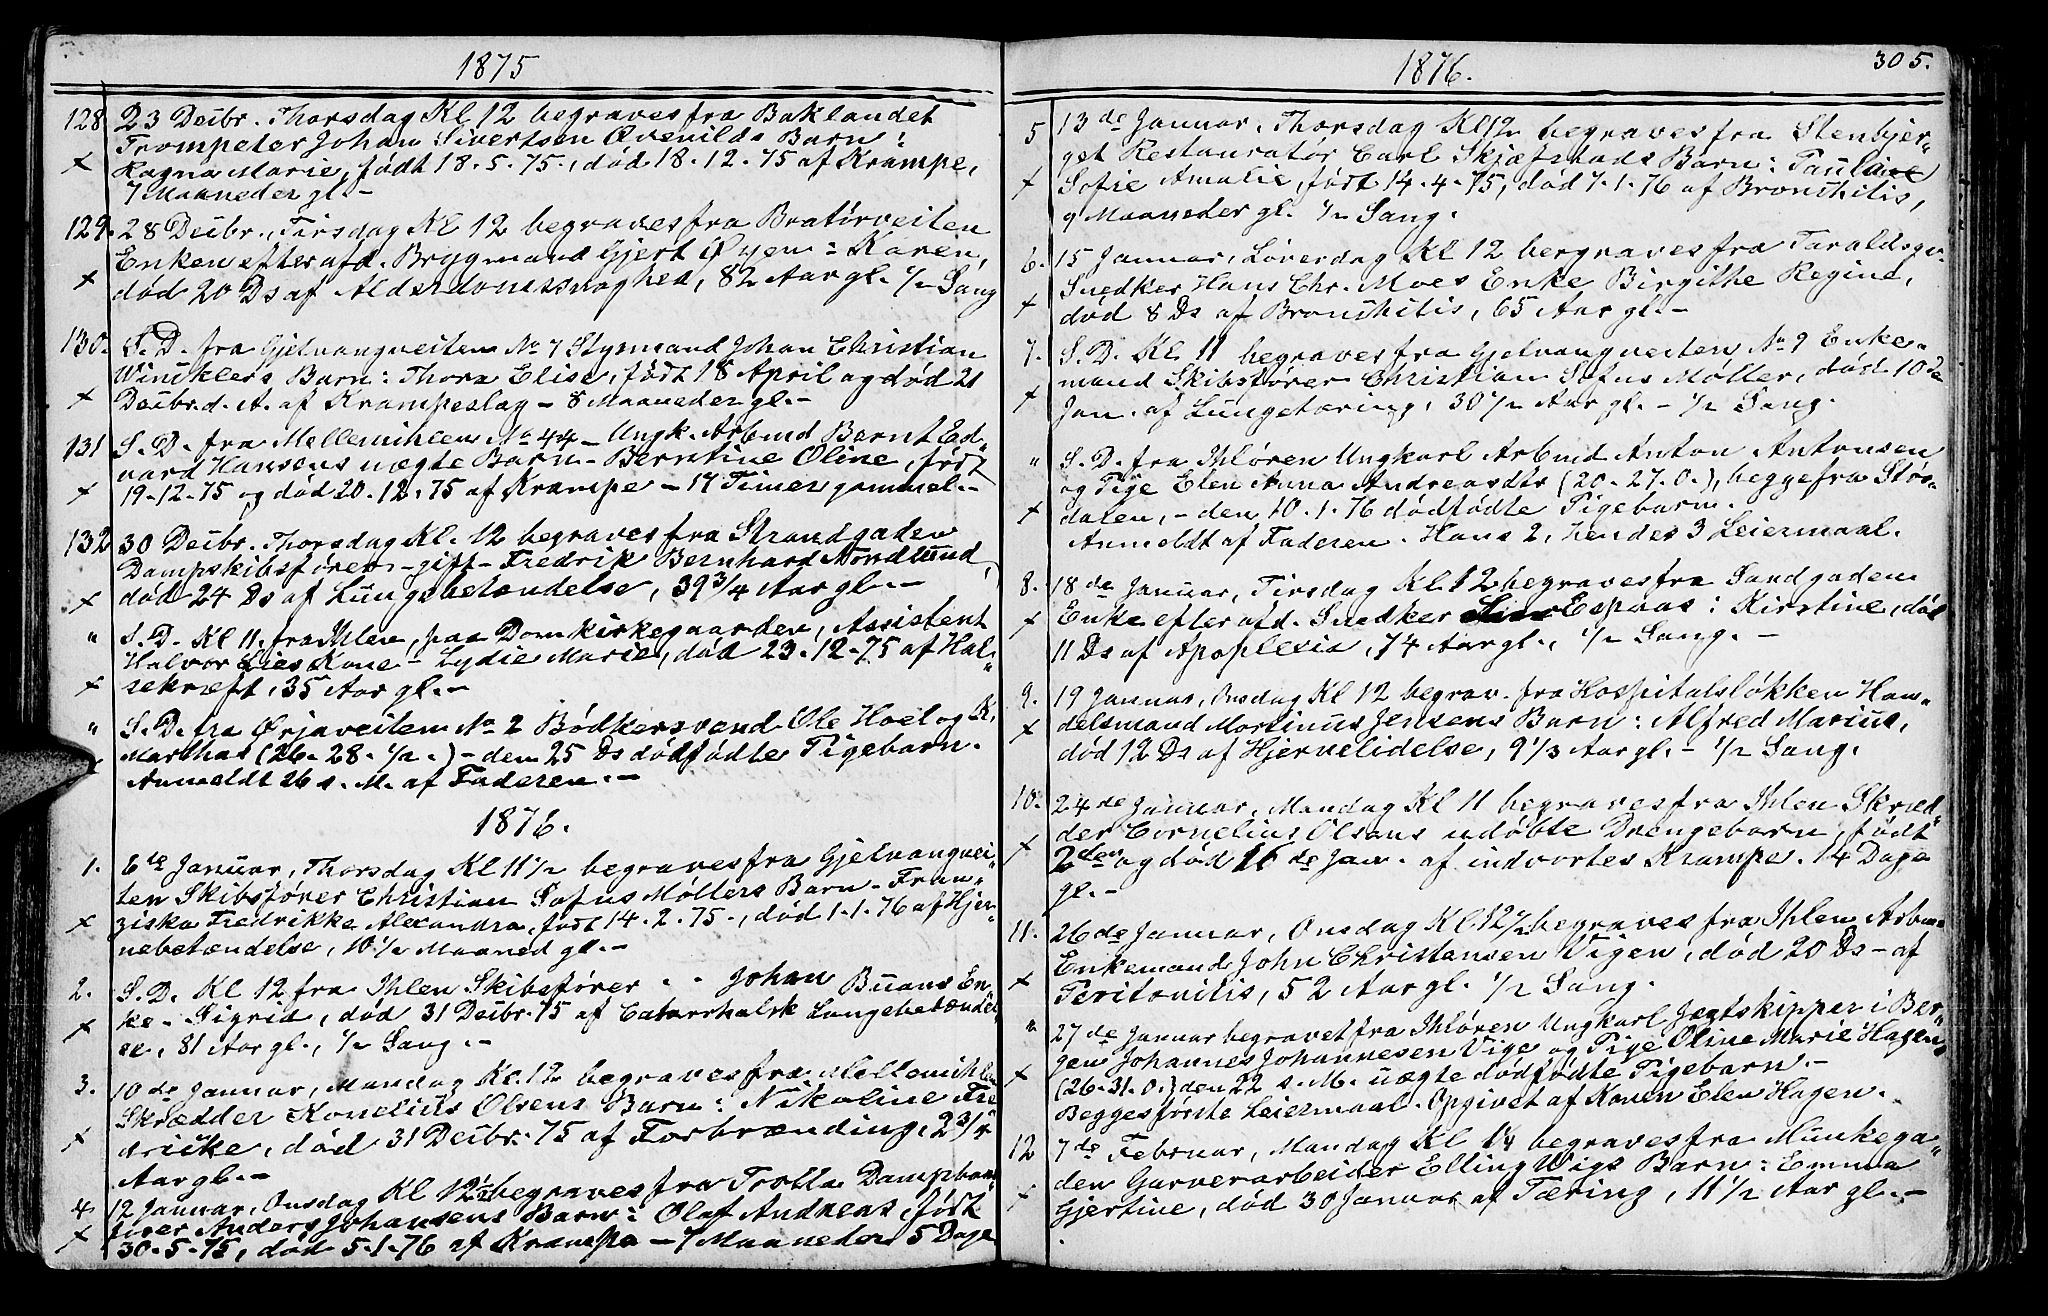 1875
128 23 Decbr. Thorsdag Kl 12 begraves fra Baklandet
Trompeter Johan Sivertsen Barn:
x Ragna Marie, født 18.5.75., død 18.12.75 af Krampe,
7 Maaneder gl. –
129. 28 Decbr., Tirsdag Kl 12 begraves fra Bratørveiten
Enken efter afd. Brygmand Gjert Øyen: Karen,
x død 20 Ds af Alderdomssvaghed, 82 Aar gl. 1/2 Sang
130. S. D. fra Gjelvangveiten No 7 Styrmand Johan Christian
Wincklers Barn: Thora Elise, født 18 April og død 21
x Decbr. d. A. af Krampeslag – 8 Maaneder gl. –
131 S. D. fra Mellemihlen No 44 – Ungk. Arbmd Bernt Ed„
vard Hansens uægte Barn – Berntine Oline, født
x 19-12-75 og død 20.12.75 af Krampe – 17 Timer gammel. –
132 30 Decbr. Thorsdag Kl. 12 begraves fra Strandgaden
Dampskibsfører – gift – Fredrik Bernhard Nordlund,
x død 24 Ds af Lungebetændelse, 39 3/4 Aar gl. –
„ S. D. Kl 11. fra Ihlen, paa Domkirkegaarden, Assistent
Halvor Lies Kone – Lydie Marie, død 23.12-75 af Hal„
x sekræft, 35 Aar gl. –
„ S. D. fra Ørjaveiten No 2 Bødkersvend Ole Hoel og K.
x Marthas (26-28. 1/2.) – den 25 Ds dødfødte Pigebarn.
Anmeldt 26 s. M. af Faderen. –
1876.
1. 6te Januar, Thorsdag Kl 11 1/2 begraves fra Gjelvangvei„
ten Skibsfører Christian Sofus Møllers Barn – Fran„
x ziska Fredrikke Alexandra, født 14.2.75., død 1.1.76 af Hjer„
nebetændelse, 10 1/2 Maaned gl. –
2. S. D. Kl 12 fra Ihlen Skibsfører . . Johan Buans En„
x ke – Sigrid, død 31 Decbr. 75 af Catarrhalsk Lungebetændel„
se, 81 Aar gl., 1/2 Sang. –
3. 10de Januar, Mandag Kl. 12 begraves fra Mellemihlen
Skrædder Konelius Olsens Barn: Nikoline Fre
x drikke, død 31 Decbr. 75 af Forbrænding, 2 3/4
Aar gl. –
4. 12 Januar, Onsdag Kl 12 1/2 begraves fra Trolla
Anders Johansens Barn: Olaf Andreas, født
x 30-5-75, død 5.1.76 af Krampe – 7 Maaneder 5 Dage
1876.
305.
5 13de Januar, Thorsdag Kl 12 begraves fra Stenbjer„
get Restauratør Carl Skjefstads Barn: Pauline
x Sofie Amalie, født 14-4-75, død 7.1.76 af Bronchitis,
9 Maaneder gl. 1/2 Sang.
6. 15 Januar, Løverdag Kl 12 bergraves fra Taraldsgv.
Snedker Hans Chr. Moes Enke Birgithe Regine,
x død 8 Ds af Bronchitis, 65 Aar gl. –
7. S. D. Kl 11 begraves fra Gjelvangveiten No 9 Enke„
mand Skibsfører Christian Sofus Møller, død 10de
x Jan. af Lungetæring, 30 1/2 Aar gl. – 1/2 Sang.
„ S. D. fra Ihløren Ungkarl Arbmd Anton Antonsen
og Pige Elen Anna Andreasdtr (20-27.0.), begge fra Stør„
x dalen, – den 10.1.76 dødfødte Pigebarn.
Anmeldt af Faderen. Hans 2, hendes 3 Leiermaal.
8. 18de Januar, Tirsdag Kl 12 begraves fra Sandgaden
x Enke efter afd. Snedker Espaas: Kirstine, død
11 Ds af Apoplexia, 74 Aar gl., 1/2 Sang. –
9. 19 Januar, Onsdag Kl 12 begrav. fra Hospitalsløkken Han„
x delsmand Martinus Jensens Barn: Alfred Marius,
død 12 Ds af Hjernelidelse, 9 1/3 Aar gl. – 1/2 Sang.
10. 24de Januar, Mandag Kl 11 begraves fra Ihlen Skræd„
der Cornelius Olsens udøbte Drengebarn, født
x 2den og død 16de Jan. af indvortes Krampe. 14 Dage
gl. –
11. 26de Januar, Onsdag Kl 12 1/2 begraves fra Ihlen Arbm.
Enkemand John Christensen Vigen, død 20 Ds – af
x Peritonitis, 52 Aar gl. 1/2 Sang.
„ 27de Januar begravet fra Ihløren Ungkarl Jegtskipper i Ber„
gen Johannes Johannesen Vige og Pige Oline Marie Hagen
x (26-31.0.) den 22 s. M. uægte dødfødte Pigebarn. –
Begges første Leiermaal. Opgivet af Konen Elen Hagen.
12 7de Februar, Mandag Kl begraves fra Munkega„
den Garverarbeider Elling Wigs Barn: Emma
x Gjertine, død 30 Januar af Tæring, 11 1/2 Aar gl. –